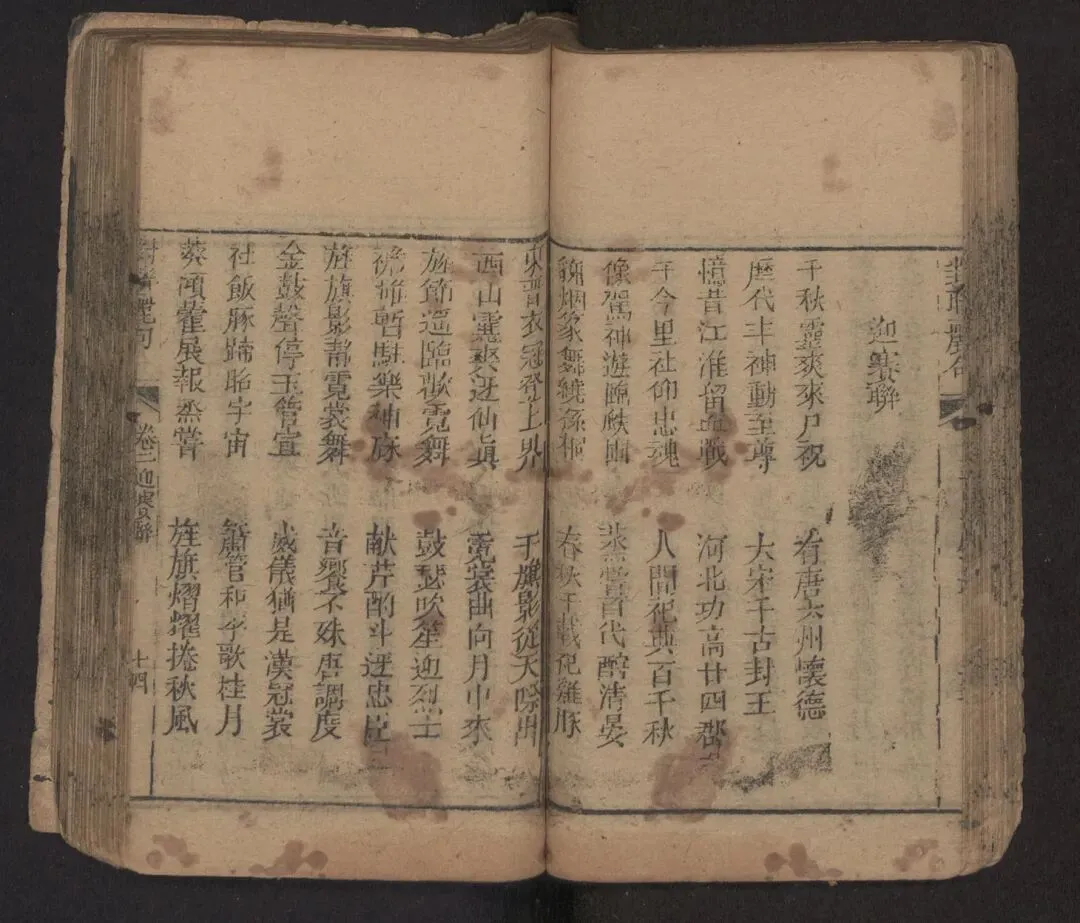 迎賽聯
千秋靈爽來尸祝　有唐六州懷德
歷代丰神動至尊　大宋千古封王
憶昔江淮留血戰　河北功高廿四郡
于今里社仰忠魂　人間祀典百千秋
像駕神遊臨　蒸嘗百代酧清晏
烟篆舞繞孫桐　春秋千載祀雞豚
東晋衣冠登上界　干旟影從天際出
西山靈爽迓仙眞　霓裳曲向月中來
旌節遙臨歌霓舞　鼓瑟吹笙迎烈士
襜帷暫駐樂神庥　献芹酌斗迓忠臣
旌旗影靜霓裳舞　音響不殊唐調度
金鼓聲停玉管宣　威儀猶是漢冠裳
社飯豚蹄昭宇宙　簫管和平歌桂月
葵傾藿展報烝嘗　旌旗熠耀捲秋風
卷三迎賽聯　十四